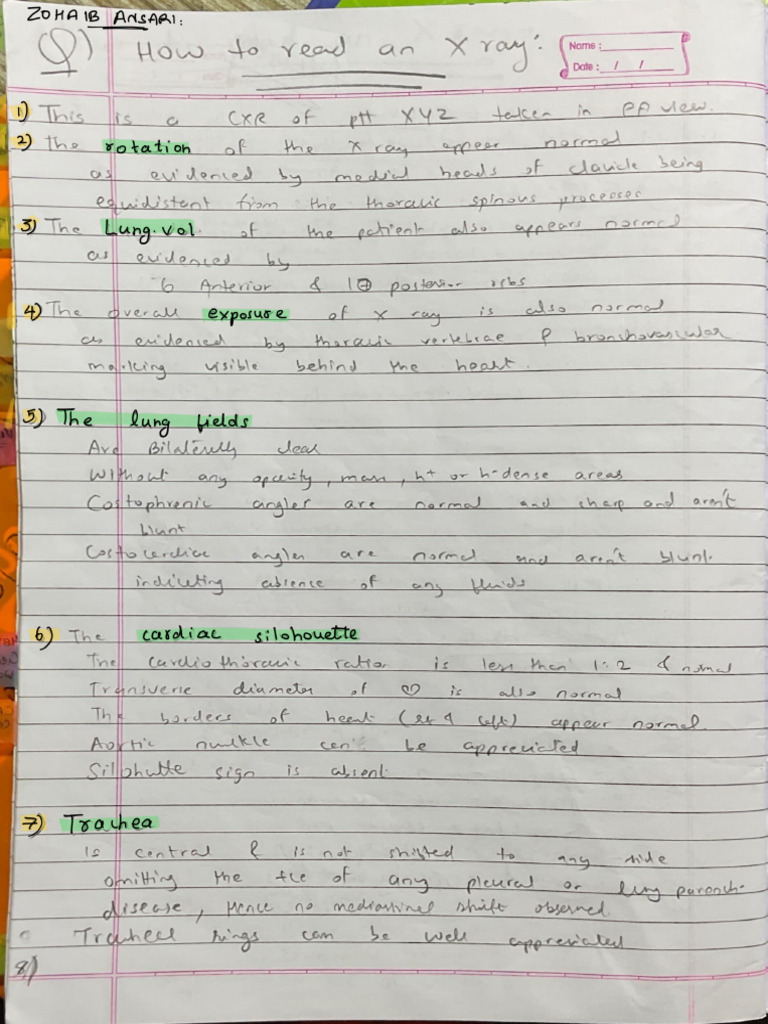 ZOHAIB ANSARI:
Q) How to read an X ray:
Name :
Date : / /
1) This is a CXR of ptt XYZ taken in PA view.
2) the rotation of the X ray appear normal
as evidenced by medial heads of clavicle being
equidistant from the thoracic spinous processes
3) The Lung.vol. of the patient also appears normal
as evidenced by
6 Anterior & 10 posterior ribs
4) The overall exposure of X ray is also normal
as evidenced by thoracic vertebrae & bronchovascular
marking visible behind the heart.
5) The lung fields
Are Bilaterally clear
Without any opacity, mass, h+ or h-dense areas
Costophrenic angles are normal and sharp and aren't
blunt
Costocardiac angles are normal and aren't blunt
indicating absence of any fluids
6) The cardiac silohouette
The cardiothoracic ratio is less than 1:2 & normal
Transverse diameter of ♡ is also normal
The borders of heart (rt & left) appear normal
Aortic nuckle can be appreciated
Silohutte sign is absent
7) Trachea
Is central & is not shifted to any side
omitting the of any pleural or lung parench.
disease, Hence no mediastinal shift observed
Tracheal rings can be well appreciated
8)